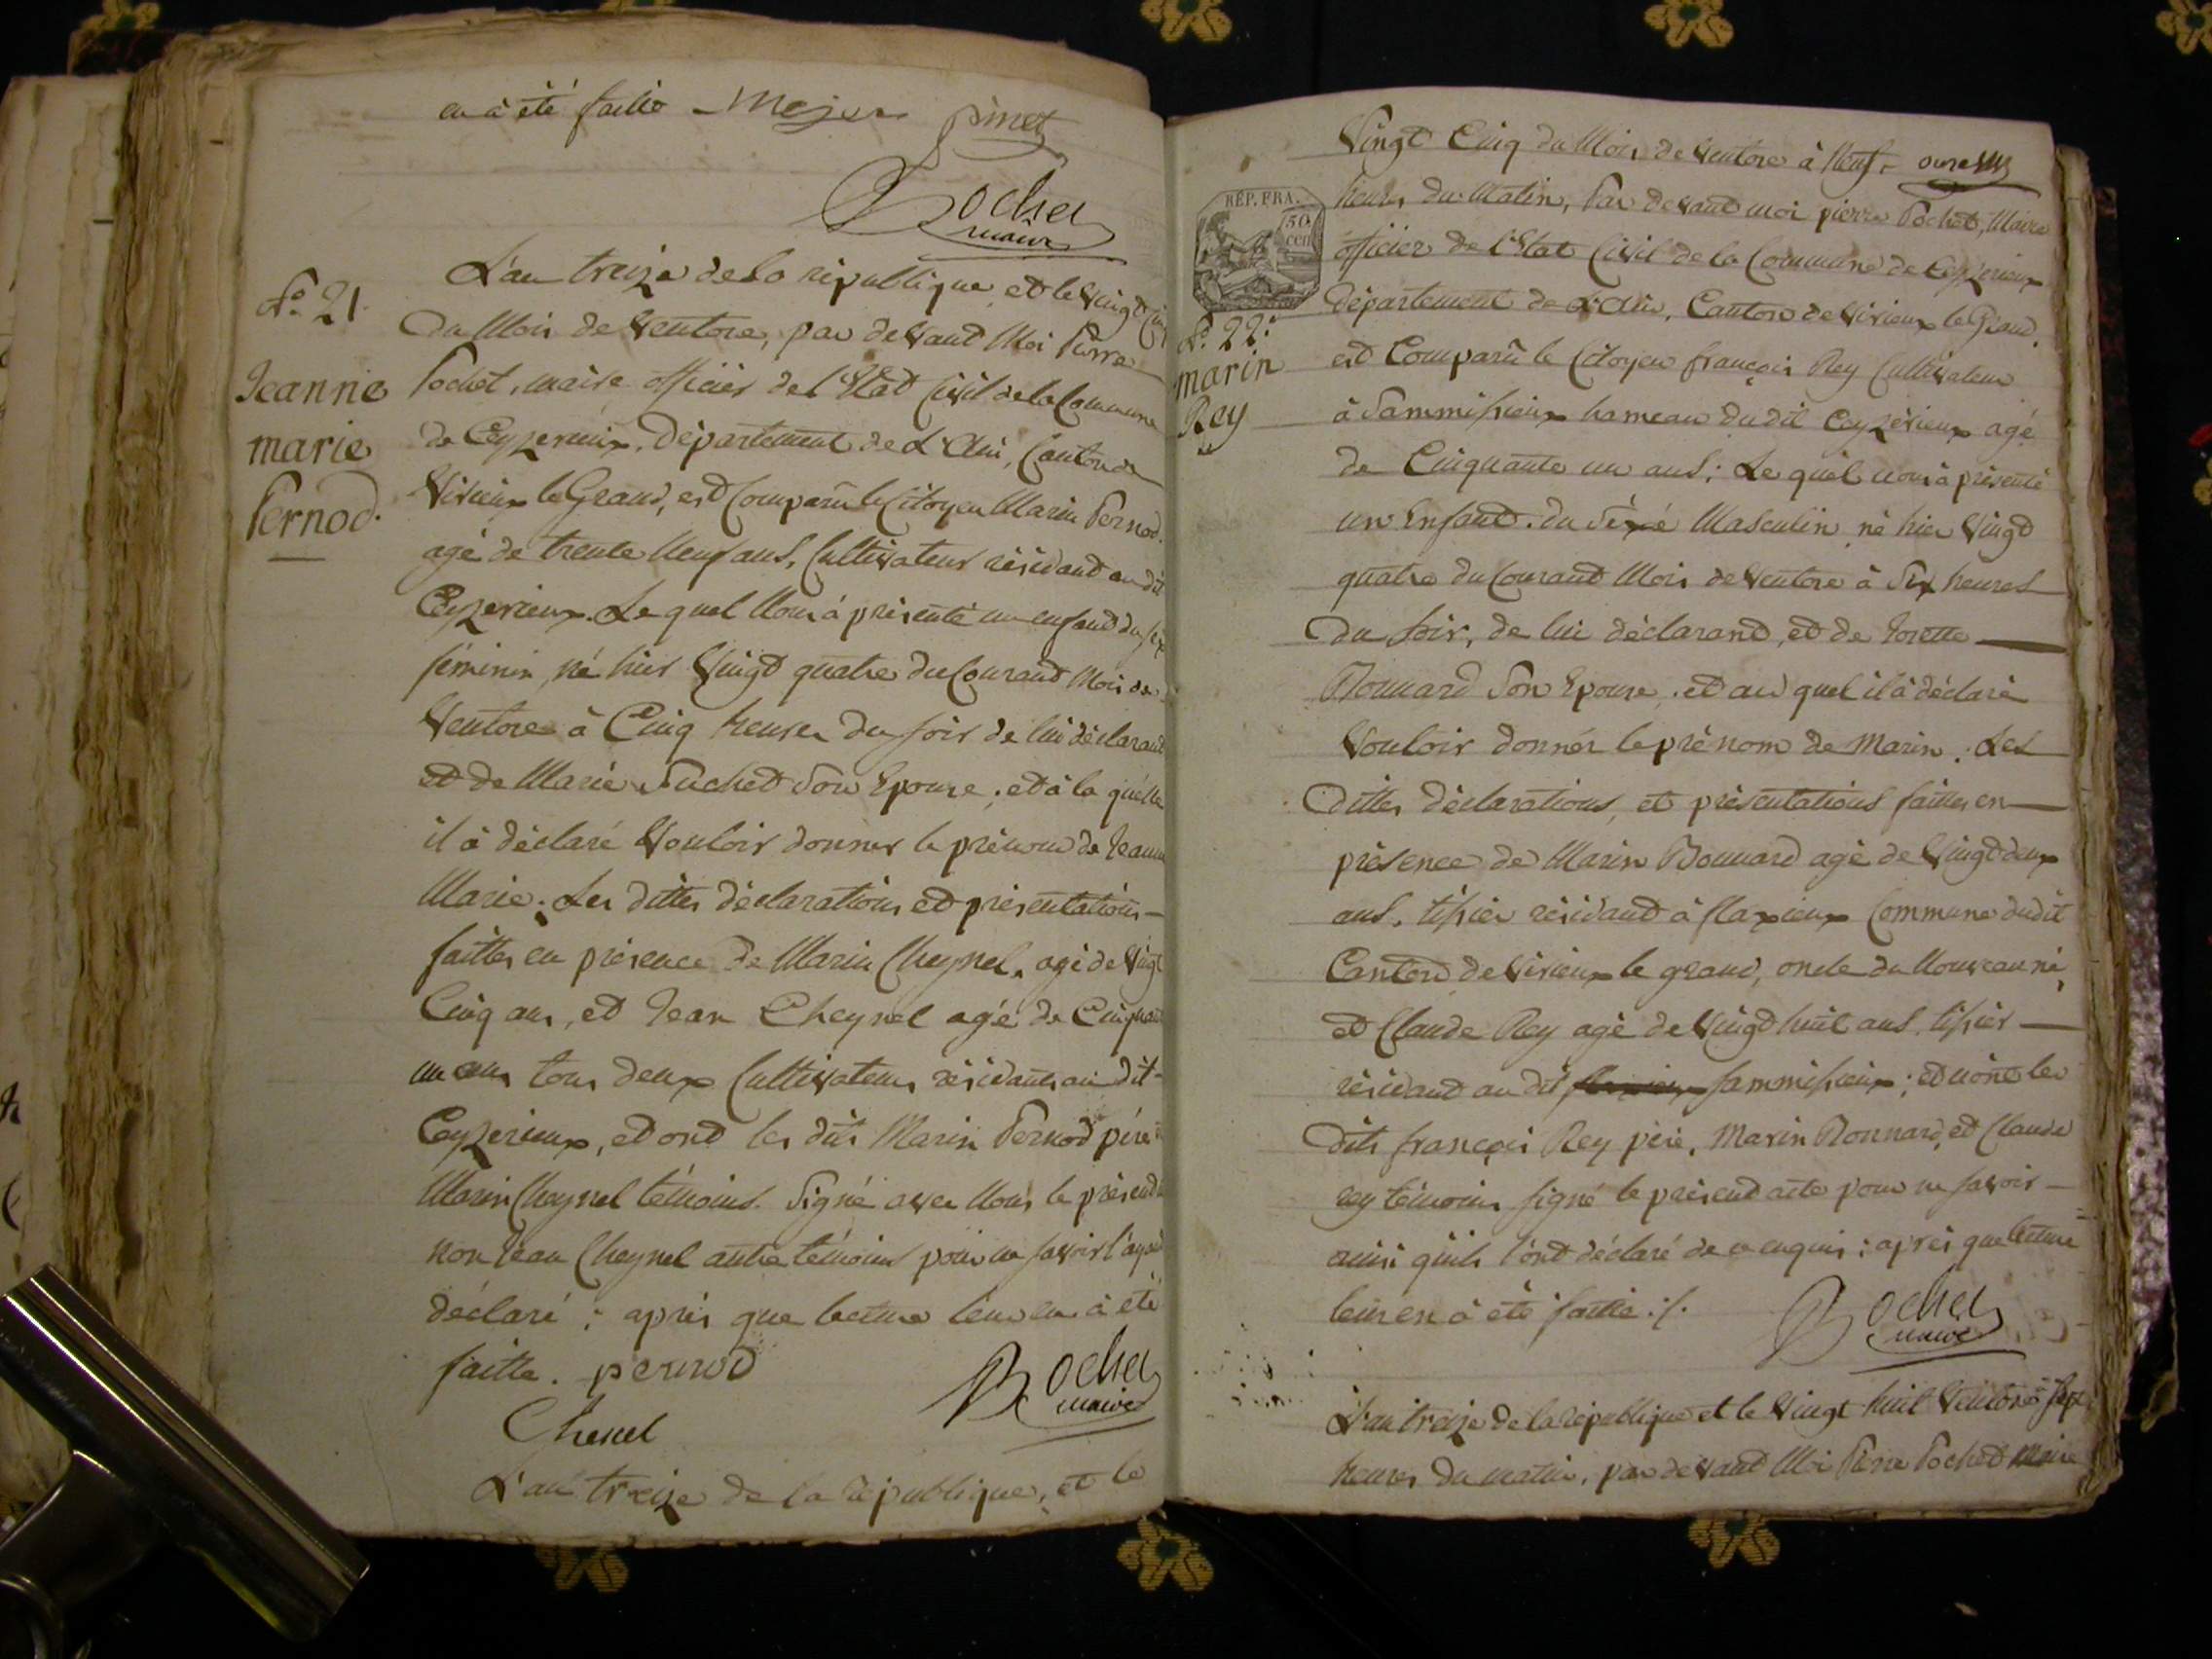 en à été faitte Mejor pinet
Pochet
maire
N.º 21.
Jeanne
marie
Pernod.
L'an treize de la république, et le Vingt Cinq
du Mois de Ventose, par devant Moi Pierre
Pochet, maire officier de l'Etat Civil de la Commune
de Ceyzerieux, département de L'Ain, Canton de
Virieux le Grand, est Comparû le Citoyen Marin Pernod.
agé de trente Neuf ans, Cultivateur résidant au dit
Ceyzerieux. Le quel Nous à présenté un enfant du sexe
féminin, né hier Vingt quatre du Courant Mois de
Ventose à Cinq heures du soir de lui déclarant
et de Marie Suchet Son Epouse, et à la quelle
il à déclaré Vouloir donner le prénom de Jeanne
Marie. Les dittes déclarations et présentations
faittes en présence de Marin Cheynel, agé de Vingt
Cinq ans, et Jean Cheynel agé de Cinquante
un ans tous deux Cultivateurs résidants au dit
Ceyzerieux, et ont les dits Marin Pernod père et
Marin Cheynel témoins Signé avec Nous le présent
non Jean Cheynel autre témoins pour ne savoir l'ayant
déclaré ; aprés que lecture leur en à été
faitte. pernod
Pochet
maire
Chenel
L'an treize de la république, et le
Vingt Cinq du Mois de Ventose à Neuf
heures du Matin, Par devant moi pierre Pochet, Maire
officier de l'Etat Civil de la Commune de Ceyzerieux
REP. FRA.
50
cen
département de L'Ain, Canton de Virieux le Grand.
N.º 22.
marin
Rey
est Comparû le Citoyen françois Rey Cultivateur
à Sammissieux hameau du dit Ceyzérieux agé
de Cinquante un ans ; Le quel nous à présenté
un Enfant du Séxé Masculin né hier Vingt
quatre du Courant Mois de Ventose à Six heures
du soir, de lui déclarant, et de Josette
Bonnard Son Epouse, et au quel il à déclaré
Vouloir donnér le prénom de Marin. Les
dittes déclarations, et présentations faittes en
présence de Marin Bonnard agé de Vingt deux
ans, tissier résidant à flaxieux Commune du dit
Canton de Virieux le grand, oncle du Nouveau né,
et Claude Rey agé de Vingt huit ans, tissier
résidant au dit flaxieux sammissieux ; et n'ont les
dits françois Rey père, Marin Bonnard, et Claude
rey témoins signé le présent acte pour ne savoir
ainsi qu'ils l'ont déclaré de ce enquis ; aprés que lecture
leur en à été faitte ./.
Pochet
maire
L'an treize de la république et le Vingt huit Ventose à sept
heures du matin, par devant Moi Pierre Pochet Maire